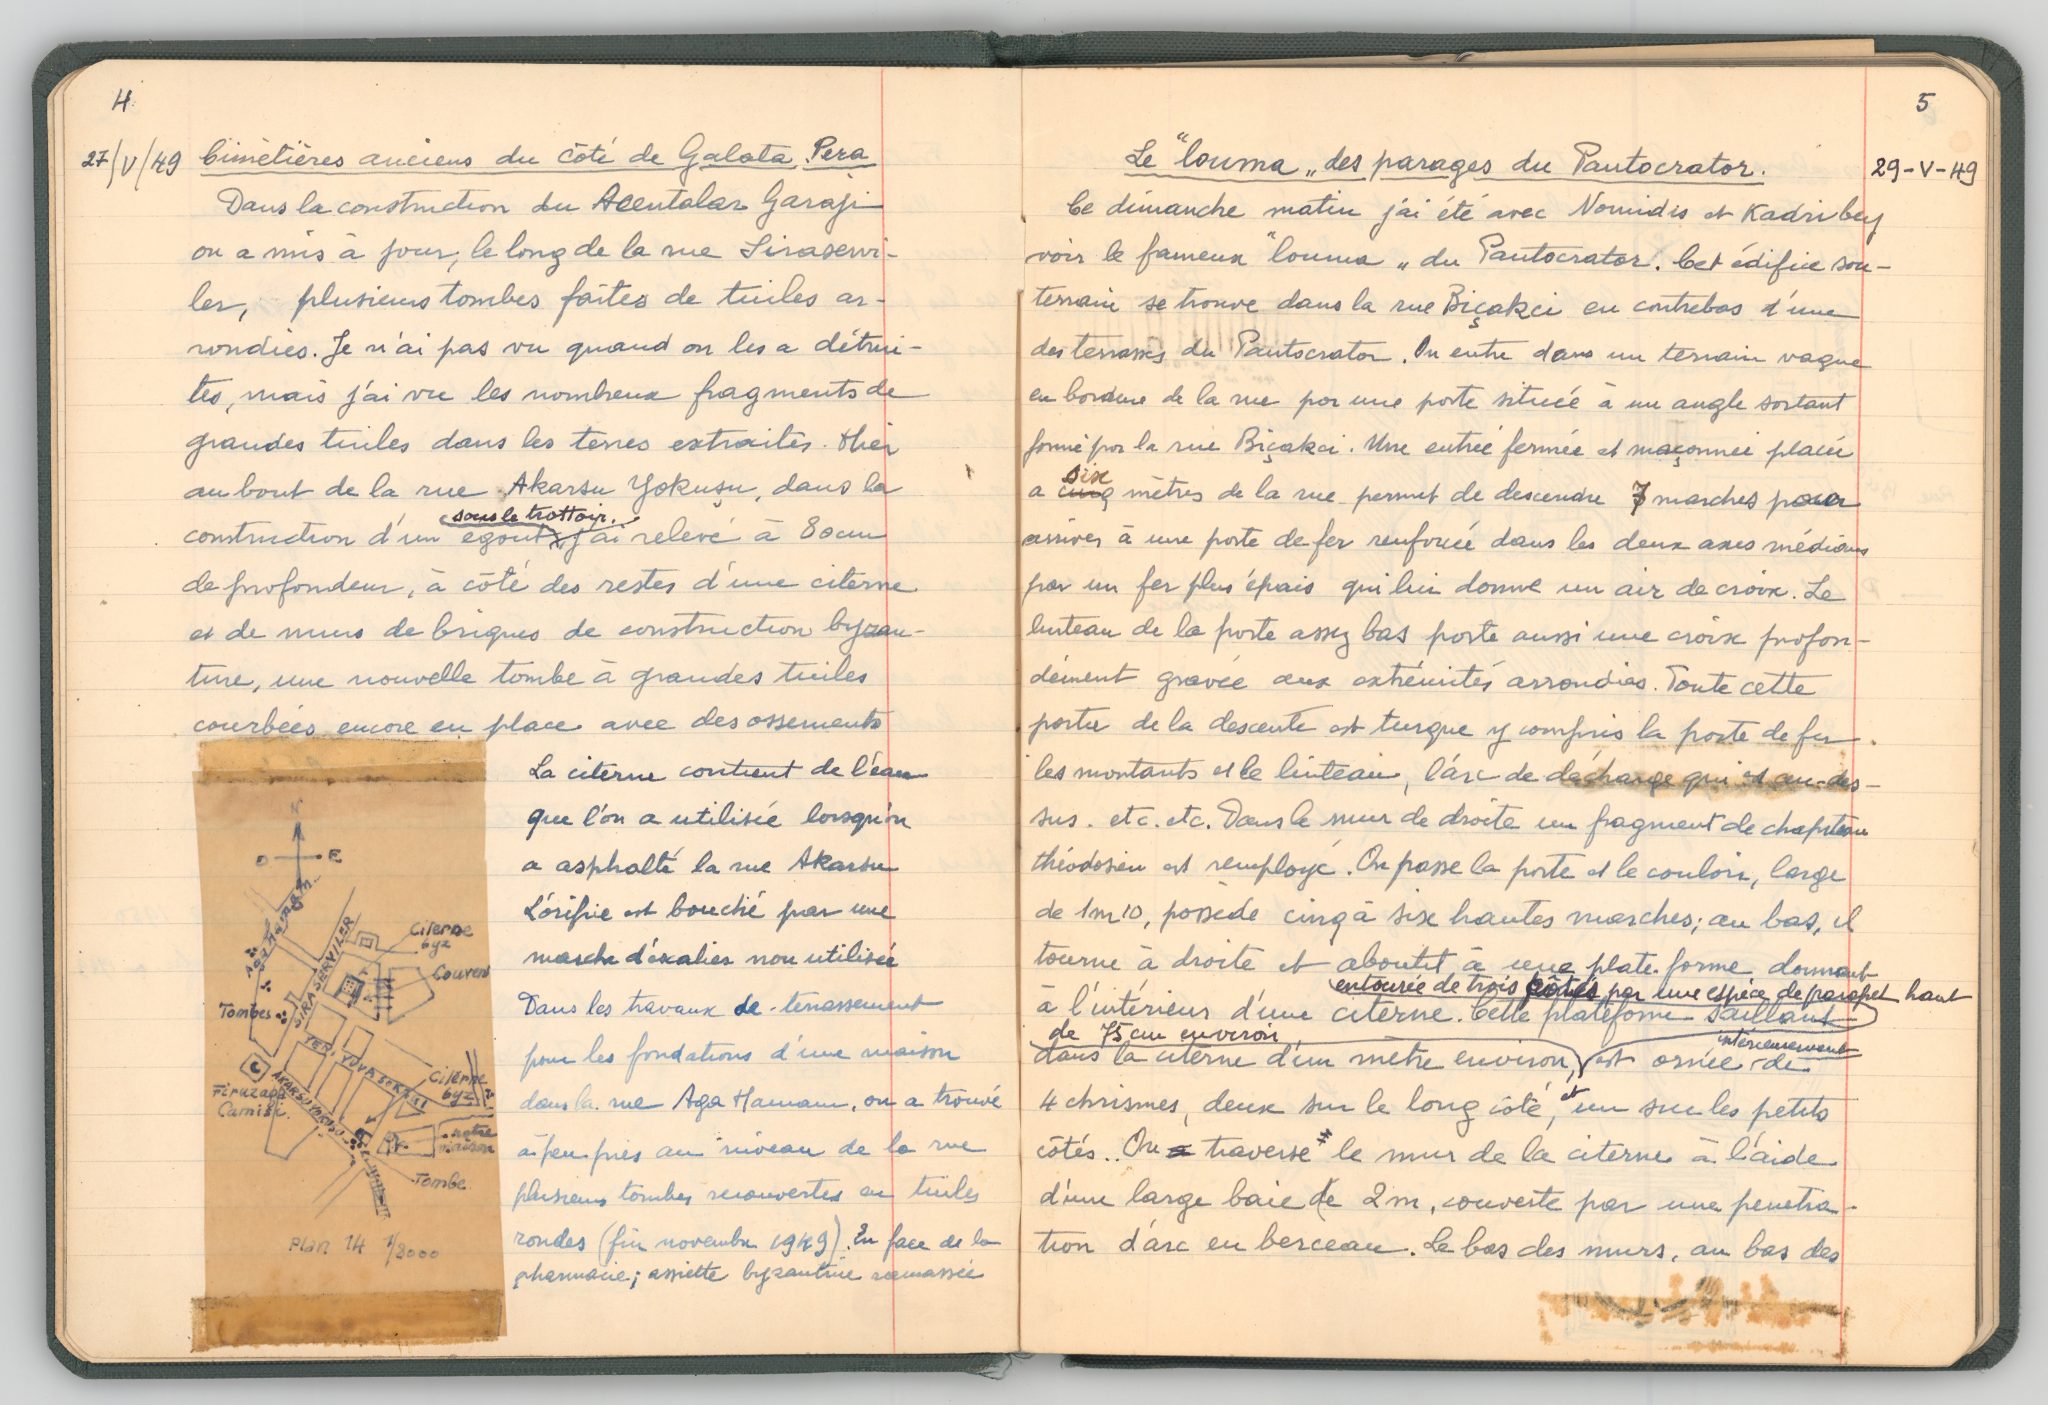 4
27/V/49 Cimètières anciens du côté de Galata Pera
Dans la construction du Acentalar Garaji
on a mis à jour, le long de la rue Siraservi-
ler, plusieurs tombes faites de tuiles ar-
rondies. Je n'ai pas vu quand on les a détrui-
tes, mais j'ai vu les nombreux fragments de
grandes tuiles dans les terres extraites. Hier
au bout de la rue Akarsu Yokuşu, dans la
sous le trottoir
construction d'un égout j'ai relevé à 80cm
de profondeur, à côté des restes d'une citerne
et de murs de briques de construction byzan-
tine, une nouvelle tombe à grandes tuiles
courbées encore en place avec des ossements
La citerne contient de l'eau
que l'on a utilisée lorsqu'on
a asphalté la rue Akarsu
L'orifice est bouché par une
marche d'escalier non utilisée
Dans les travaux de terrassement
pour les fondations d'une maison
dans la rue Aga Hamam, on a trouvé
à peu près au niveau de la rue
plusieurs tombes recouvertes en tuiles
rondes (fin novembre 1949). En face de la
pharmacie; assiette byzantine ramassée
N
O E
AGA HAMAM
SIRASERVILER
Citerne
byz
Couvent
Tombes
YENI YUVA SOKAGI
AKARSU YOKUSU
Firuzaga
Camisi
Citerne
byz
notre
maison
Tombe
Plan 14 1/2000
5
Le "louma" des parages du Pantocrator. 29-V-49
Ce dimanche matin j'ai été avec Nomidis et Kadri bey
voir le fameux "louma" du Pantocrator. Cet édifice sou-
terrain se trouve dans la rue Biçakci en contrebas d'une
des terrasses du Pantocrator. On entre dans un terrain vague
en bordure de la rue par une porte située à un angle sortant
formé par la rue Biçakci. Une entrée fermée et maçonnée placée
six
a cinq mètres de la rue permet de descendre 7 marches pour
arriver à une porte de fer renforcée dans les deux axes médians
par un fer plus épais qui lui donne un air de croix. Le
linteau de la porte assez bas porte aussi une croix profon-
dément gravée aux extrémités arrondies. Toute cette
partie de la descente est turque y compris la porte de fer
les montants et le linteau, l'arc de décharge qui est au-des-
sus. etc. etc. Dans le mur de droite un fragment de chapiteau
théodosien est remployé. On passe la porte et le couloir, large
de 1m10, possède cinq à six hautes marches; au bas, il
tourne à droite et aboutit à une plate-forme donnant
entourée de trois côtés par une espèce de parapet haut
à l'intérieur d'une citerne. Cette plateforme saillant
de 75 cm environ
intérieurement
dans la citerne d'un mètre environ, est ornée de
4 chrismes, deux sur le long côté, et un sur les petits
côtés.. On traverse le mur de la citerne à l'aide
d'une large baie de 2m, couverte par une penetra-
tion d'arc en berceau. Le bas des murs, au bas des